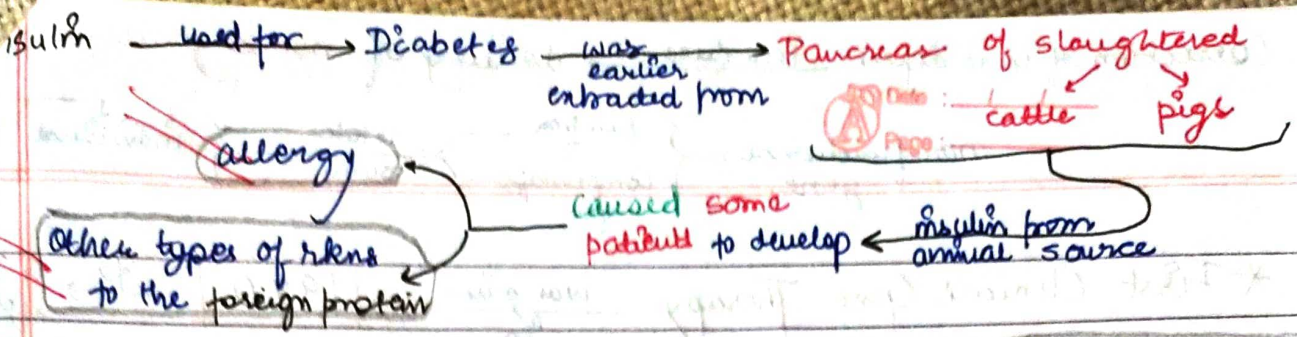 isulin used for Diabetes was earlier extracted from Pancreas of slaughtered
cattle pigs
Date :
Page :
insulin from
annual source
caused some
patients to develop
allergy
Other types of rkns
to the foreign protein